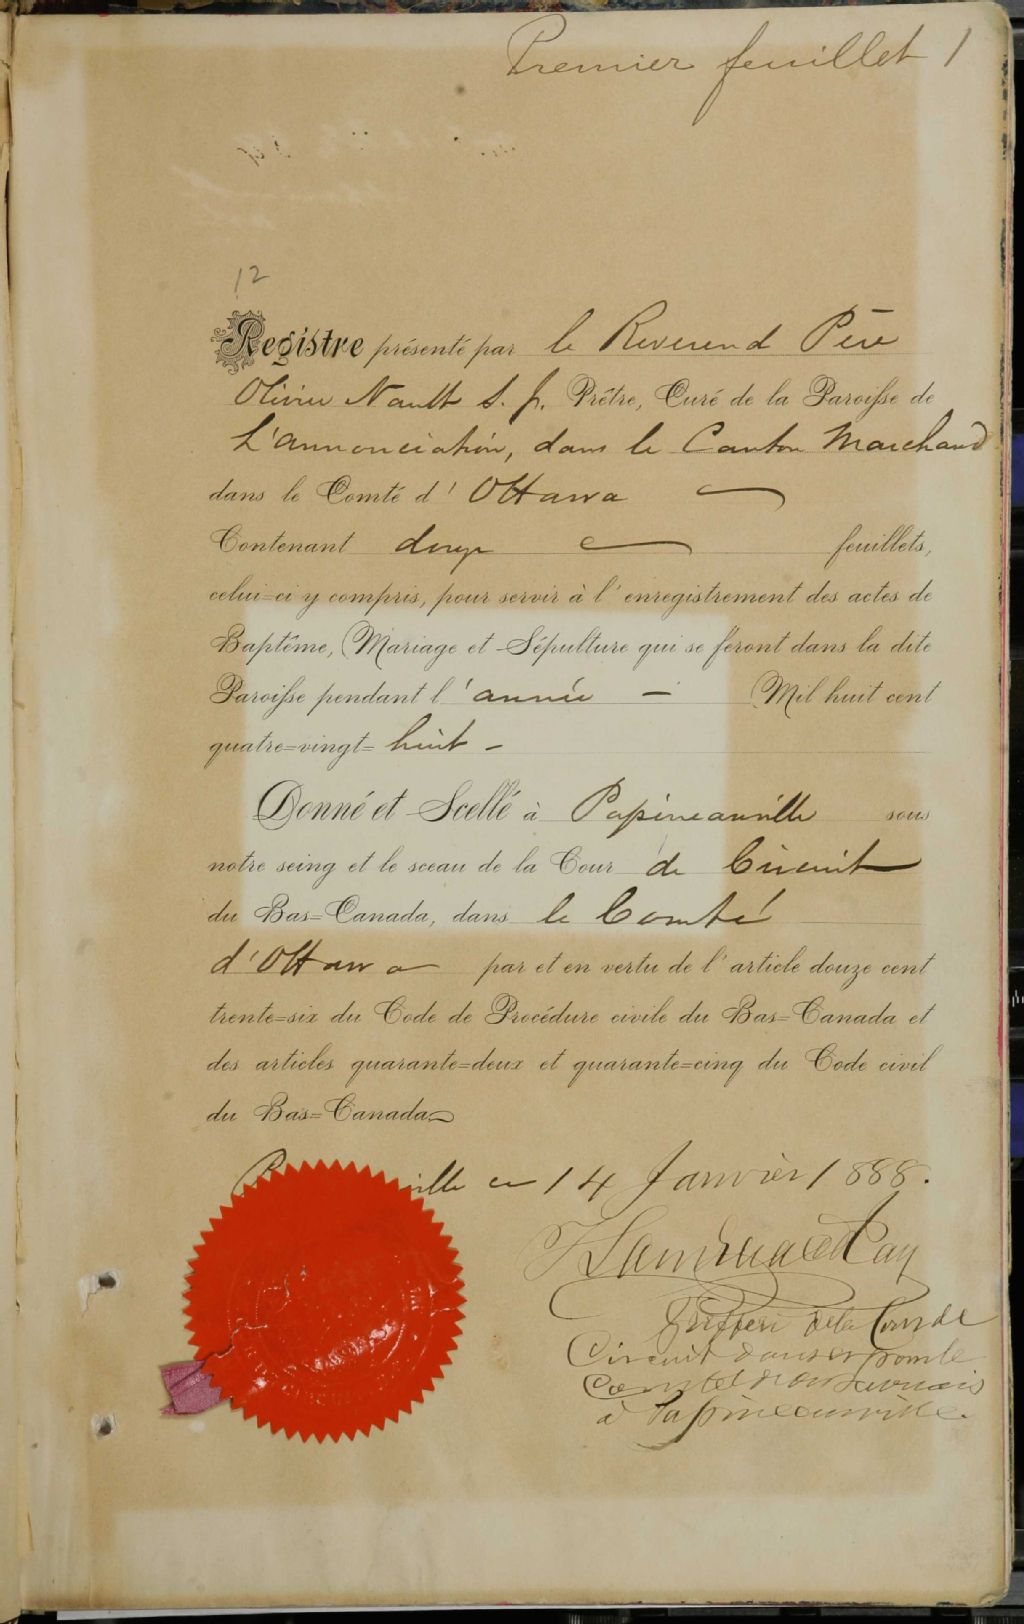 Premier feuillet 1
12
Registre présenté par le Reverend Père
Olivier Nault S. J. Prêtre, Curé de la Paroisse de
L'annonciation, dans le Canton Marchand
dans le Comté d' Ottawa
Contenant douze feuillets,
celui-ci y compris, pour servir à l'enregistrement des actes de
Baptême, Mariage et Sépulture qui se feront dans la dite
Paroisse pendant l'année — Mil huit cent
quatre-vingt-huit —
Donné et Scellé à Papineauville sous
notre seing et le sceau de la Cour de Circuit
du Bas-Canada, dans le Comté
d'Ottawa par et en vertu de l'article douze cent
trente-six du Code de Procédure civile du Bas-Canada et
des articles quarante-deux et quarante-cinq du Code civil
du Bas-Canada
ville ce 14 Janvier 1888.
de la Cour de
Circuit dans et pour le
à Papineauville.